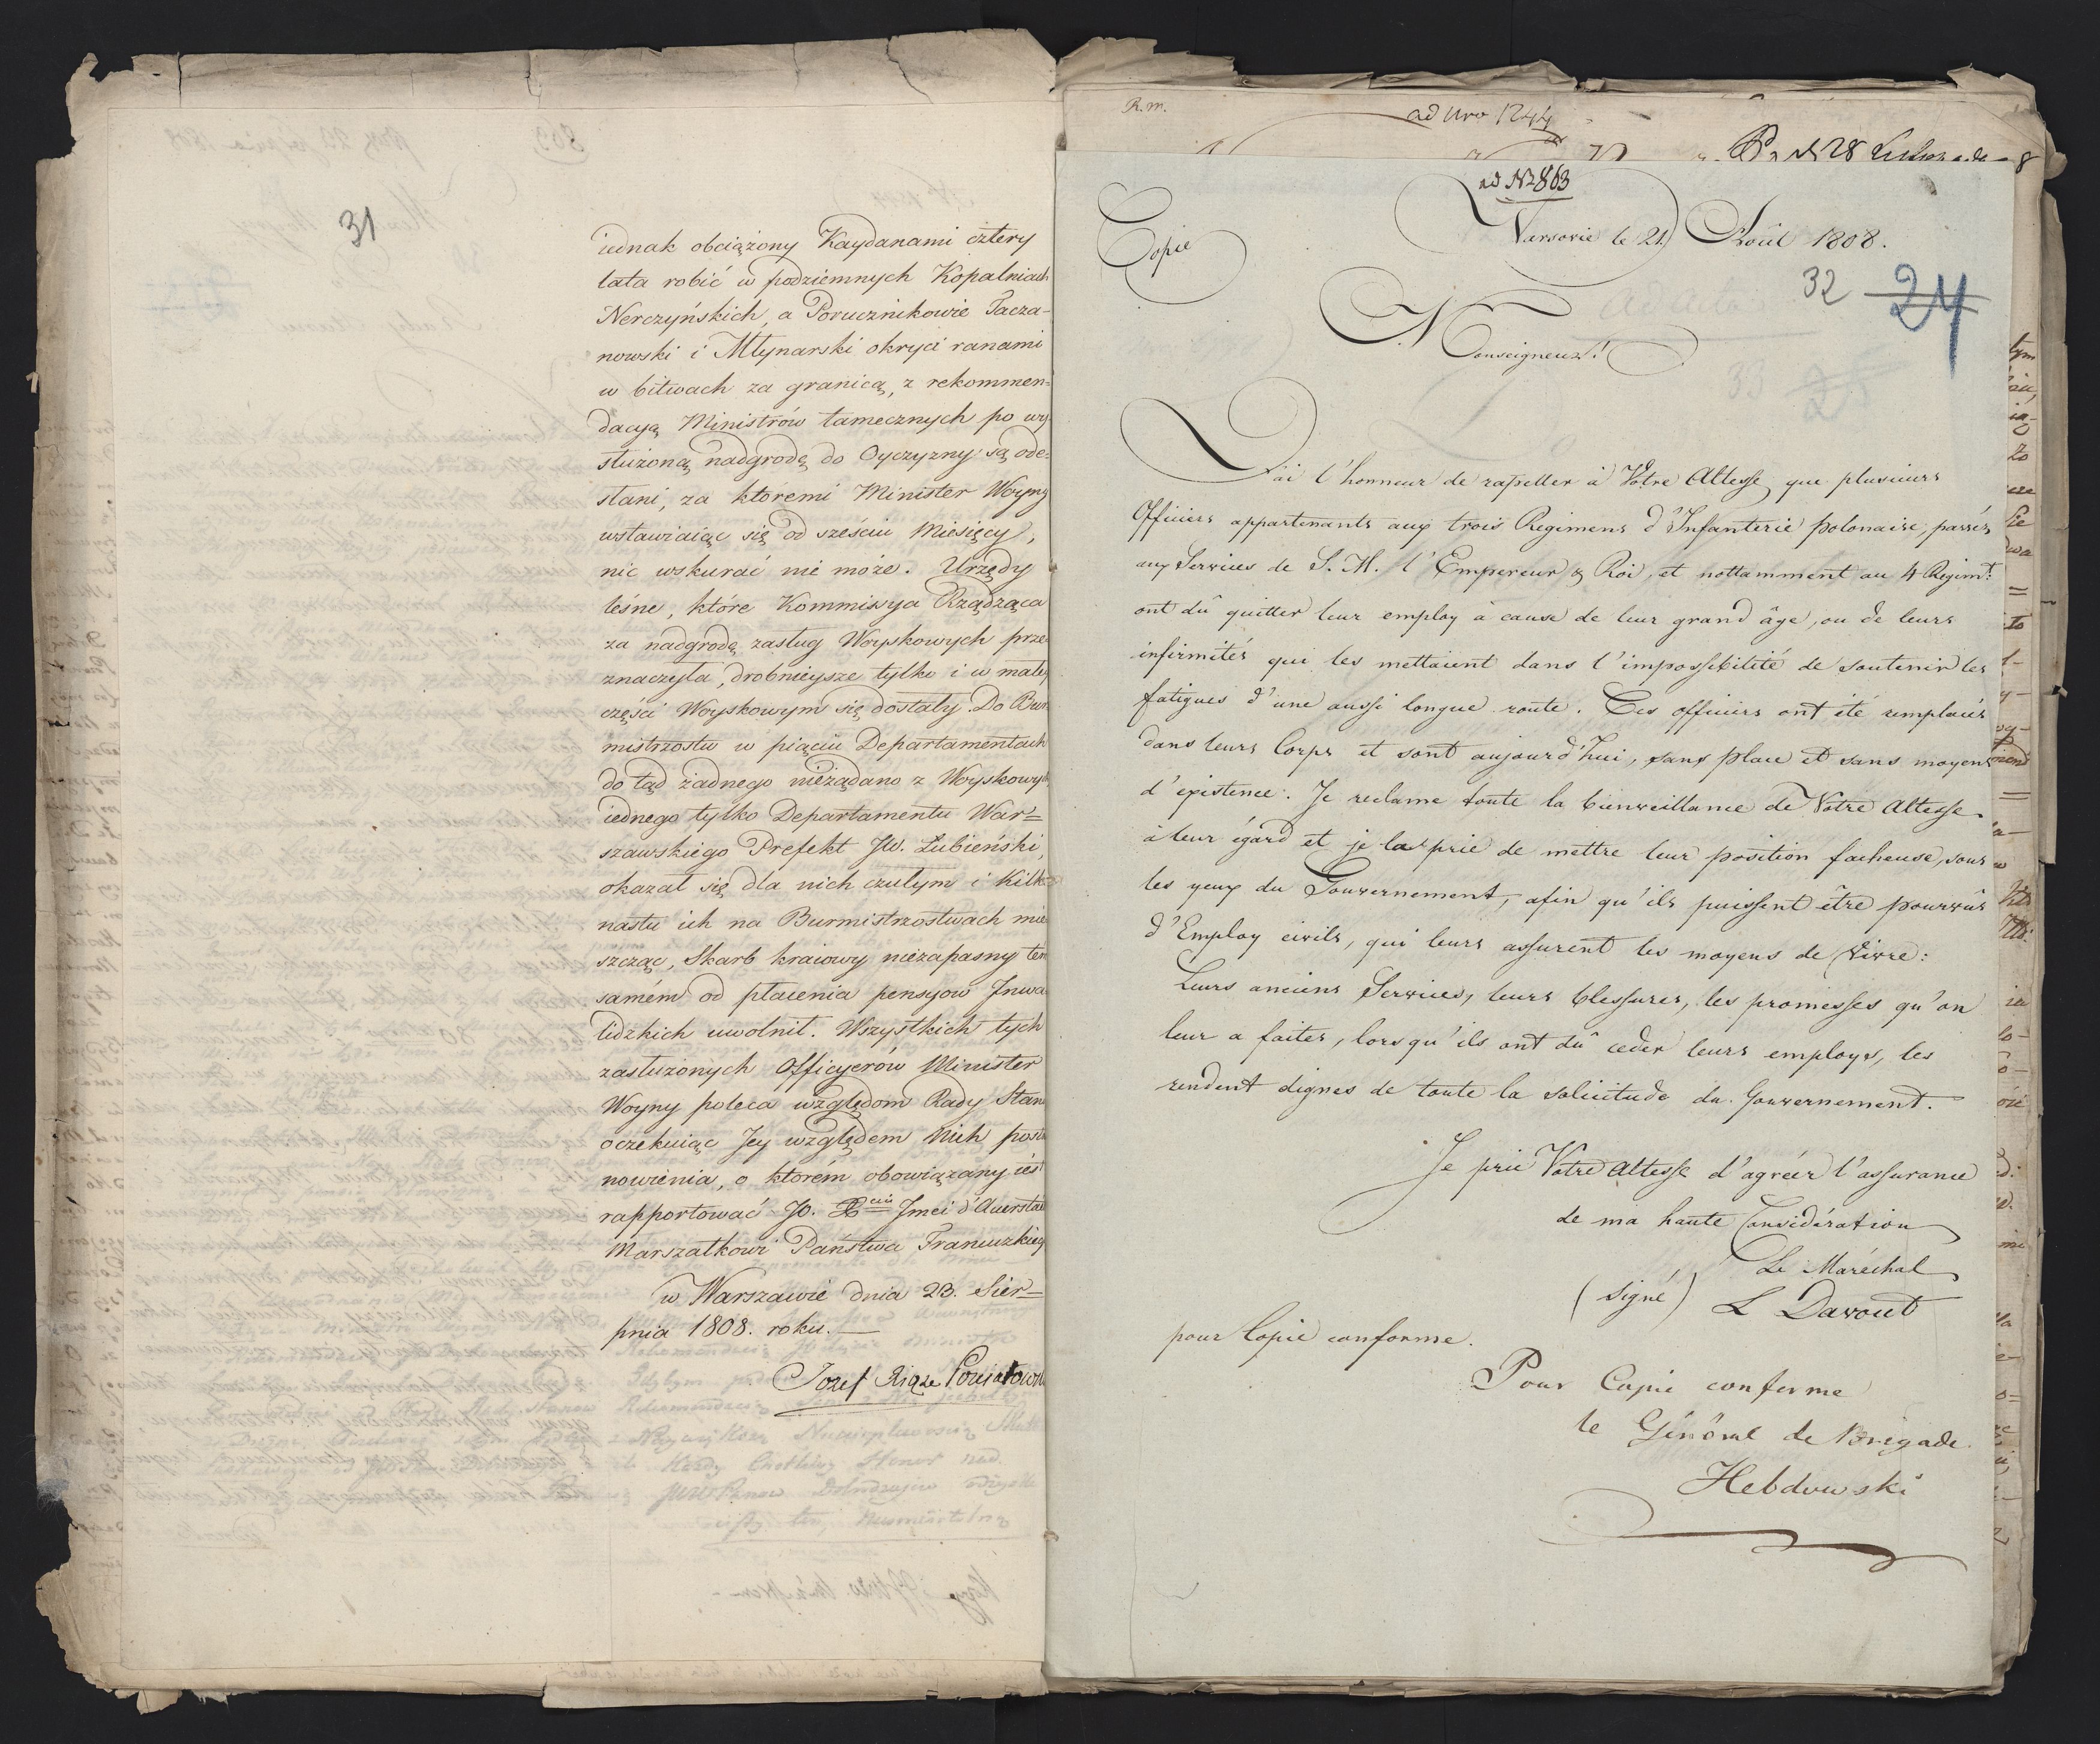 31
iednak obciążony Kaydanami cztery
lata robić w podziemnych Kopalniach
Nerczyńskich, a Porucznikowie Tacza-
nowski i Młynarski okryci ranami
w bitwach za granicą, z rekommen=
dacyą Ministrów tamecznych po wy
służoną nadgrodę do Oyczyzny są ode=
słani, za któremi Minister Woyny
wstawiaiąc się od sześciu Miesięcy,
nic wskurać nie może. Urzędy
leśne, które Kommissya Rządząca
za nadgrodę zasług Woyskowych prze
znaczyła, drobnieysze tylko i w małey
części Woyskowym się dostały. Do Bur
mistrzostw w piąciu Departamentach
do tąd żadnego nieżądano z Woyskowych
iednego tylko Departamentu War=
szawskiego Prefekt JW. Łubieński,
okazał się dla nich czułym i Kilk
nastu ich na Burmistrzostwach mie
szcząc, Skarb kraiowy niezapasny tem
samém od płacenia pensyow Inwa
lidzkich uwolnił. Wszystkich tych
zasłużonych Officyerów Minister
Woyny poleca względom Rady Stanu
oczekuiąc Jey względem Nich posta
nowienia, o ktorém obowiązany iest
rapportować JO. Xciu Jmci d'Auerstaed
Marszałkowi Państwa Francuzkieg
w Warszawie dnia 23. Sier=
pnia 1808. roku.—
Jozef Xiąze Poniatowski
R. m.
ad Nro 1244
ad N 863
Copie
Varsovie le 21. Août 1808.
32 24
Monseigneur!
J'ai l'honneur de rapeller à Votre Altesse que plusieurs
Officiers appartenants aux trois Regimens d'Infanterie polonaise, passés
aux Services de S. M. l'Empereur & Roi, et nottamment au 4 Regimt:
ont dû quitter leur employ à cause de leur grand âge, ou de leurs
infirmités qui les mettaient dans l'impossibilité de soutenir les
fatigues d'une aussi longue route. Ces officiers ont été remplacés
dans leurs Corps et sont aujourd'hui, sans place et sans moyens
d'existence. Je reclame toute la bienveillance de Votre Altesse
à leur égard et je la prie de mettre leur position facheuse, sous
les yeux du Gouvernement, afin qu'ils puissent être pourvûs
d'Employ civils, qui leurs assurent les moyens de vivre:
Leurs anciens Services, leurs blessures, les promesses qu'on
leur a faites, lorsqu'ils ont dû ceder leurs employs, les
rendent dignes de toute la solicitude du Gouvernement.
Je prie Votre Altesse d'agréer l'assurance
de ma haute Considération
Le Maréchal
(signé) L Davout
pour Copie conforme.
Pour Copie conforme
le Général de Brigade
Hebdowski